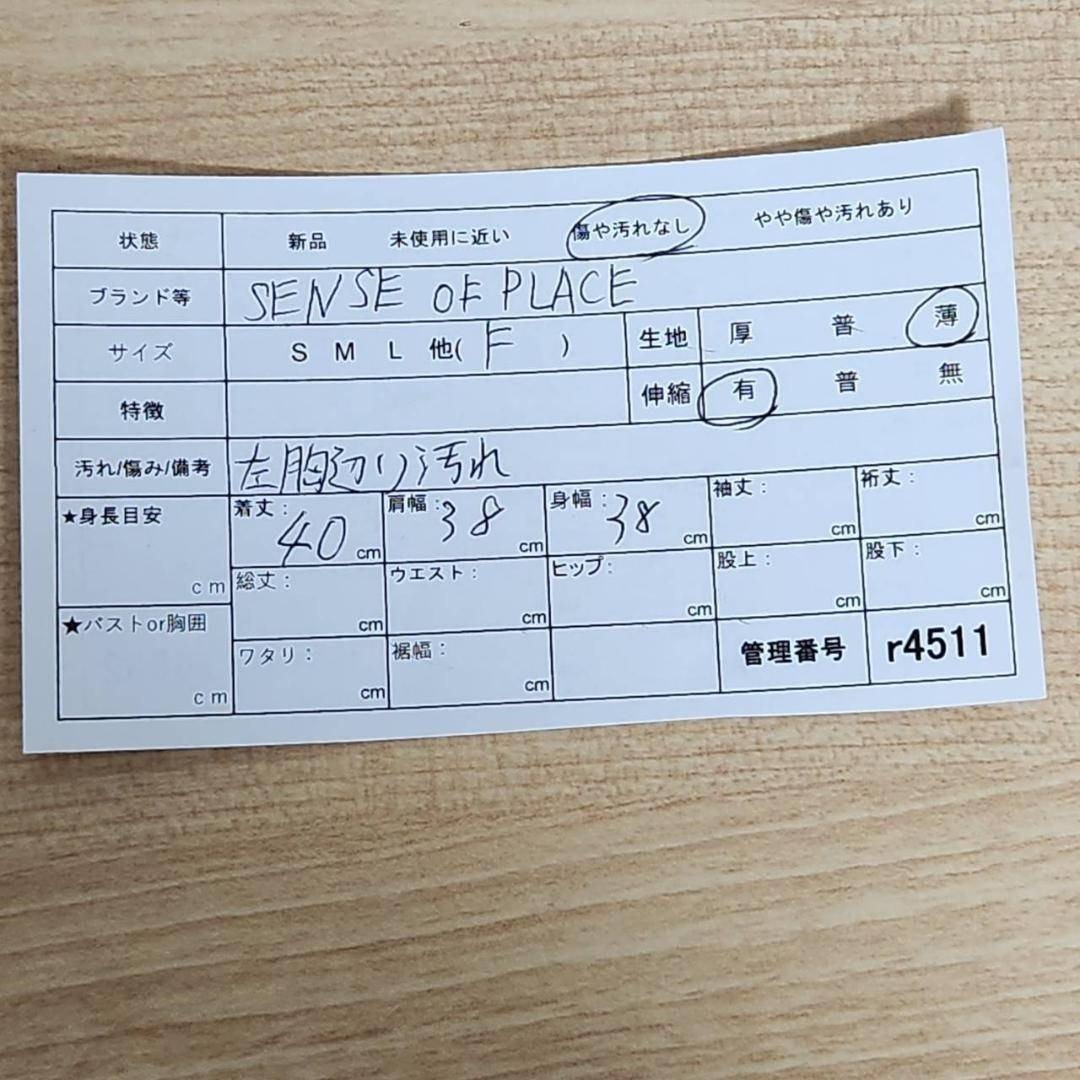 状態 新品 未使用に近い 傷や汚れなし やや傷や汚れあり
ブランド等 SENSE OF PLACE
サイズ S M L 他( F ) 生地 厚 普 薄
特徴 伸縮 有 普 無
汚れ/傷み/備考 左胸辺り汚れ
★身長目安 cm 着丈: 40 cm 肩幅: 38 cm 身幅: 38 cm 袖丈: cm 裄丈: cm
総丈: cm ウエスト: cm ヒップ: cm 股上: cm 股下: cm
★バストor胸囲 cm ワタリ: cm 裾幅: cm 管理番号 r4511